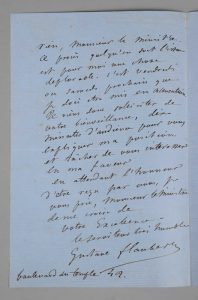 rien, Monsieur le Ministre,
ce procès quelqu'en soit l'issue
est pour moi une chose
déplorable. c'est vendredi
ou samedi prochain que
je dois être mis en
Je viens donc solliciter de
votre bienveillance, deux
minutes d'audience pour vous
expliquer ma position
et tâcher de vous intéresser
en ma faveur
en attendant l'honneur
d'être reçu par vous, je
vous prie, Monsieur le Ministre
de me croire de
votre Excellence
le serviteur très humble
Gustave Flaubert
boulevard du temple 42